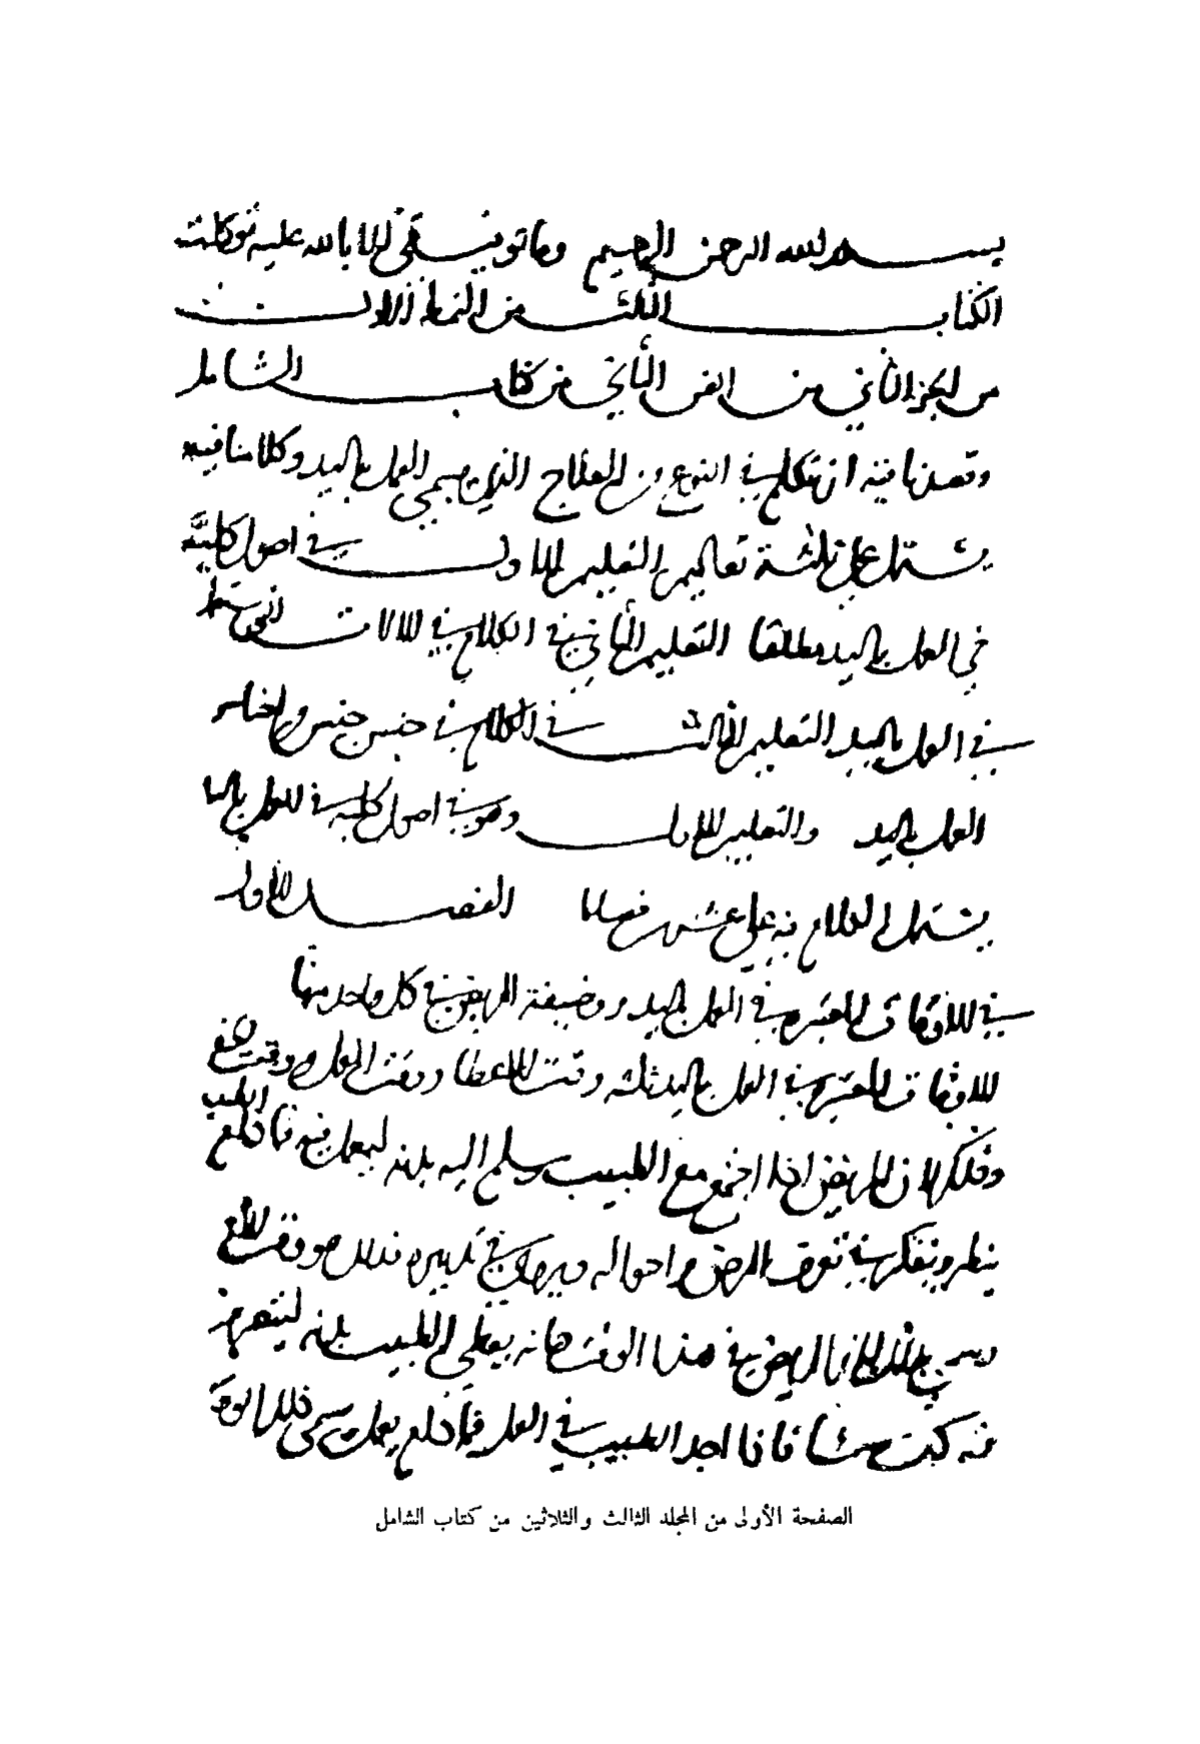 بسم الله الرحمن الرحيم وما توفيقي الا بالله عليه توكلت
الكتاب الثالث من النمط الاول
من الجزء الثاني من الفن الثاني من كتاب الشامل
وقصدنا فيه ان نتكلم في النوع من العلاج الذي يسمى العمل باليد وكلامنا فيه
يشتمل على ثلثة تعاليم التعليم الاول في اصول كلية
في العمل باليد مطلقا التعليم الثاني في الكلام في الالات
في العمل باليد التعليم الثالث في الكلام في جنس جنس من اجناس
العمل باليد والتعليم الاول وهو في اصول كلية في العمل باليد
يشتمل الكلام فيه على عشرين فصلا الفصل الاول
في الاوقات المعتبرة في العمل باليد ووضيفة المريض في كل واحد منها
الاوقات المعتبرة في العمل باليد ثلثة وقت الاعطا ووقت العمل ووقت الحفظ
وذلك لان المريض اذا اجتمع مع الطبيب وسلم اليه بدنه ليعمل فيه فما دام الطبيب
ينظر ويتفكر في تعرف المرض واحواله وتدبيره فذلك هو وقت الاعطا
المريض في هذا الوقت كانه يعطي الطبيب بدنه ليتصرف
فيه كيف شا فاذا اخذ الطبيب في العمل فما دام يعمل سمي ذلك الوقت
الصفحة الأولى من المجلد الثالث والثلاثين من كتاب الشامل